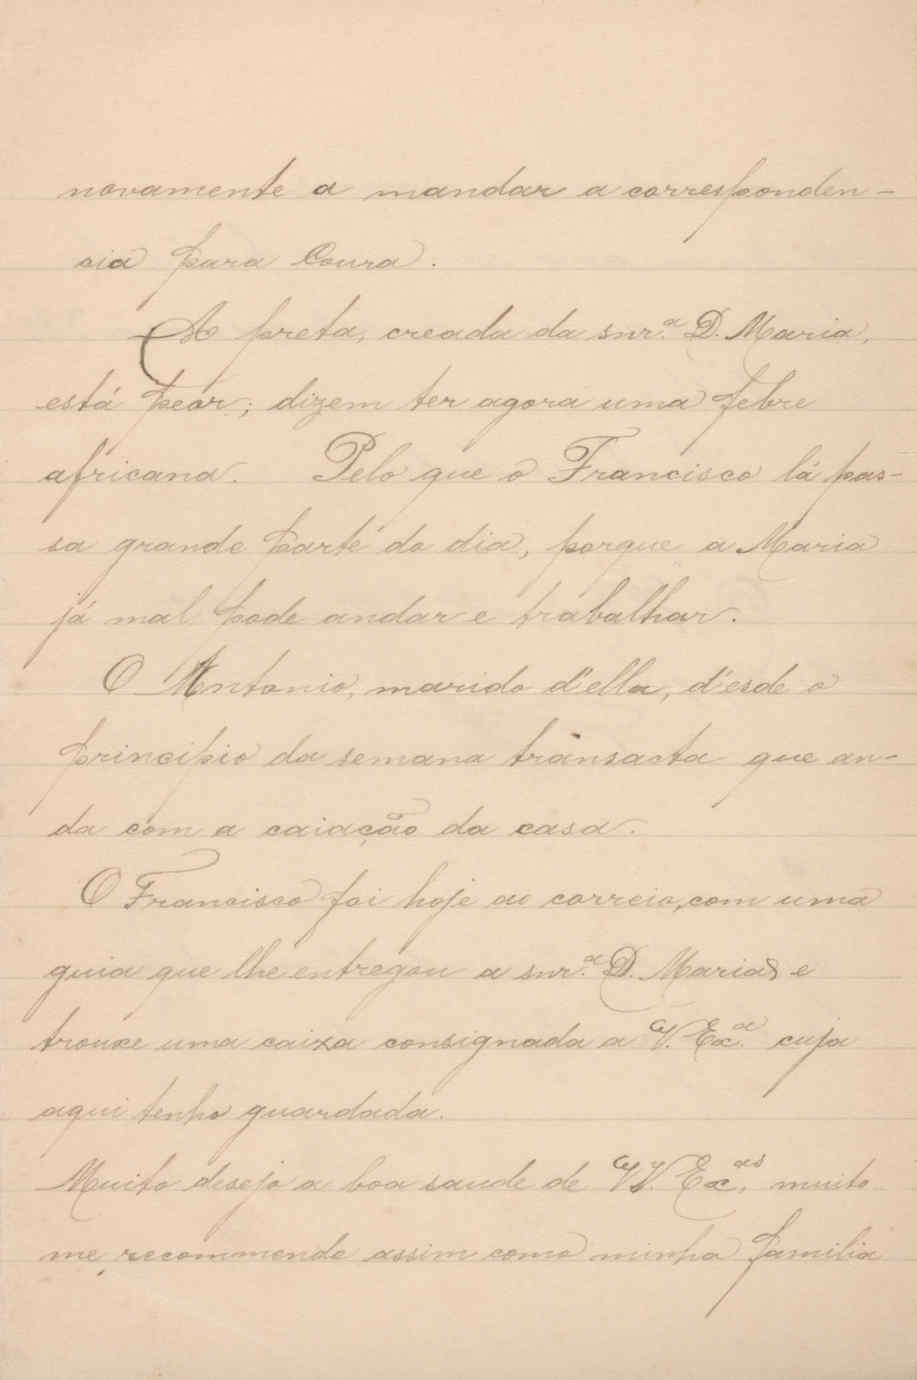 novamente a mandar a corresponden-
cia para Coura.
A preta, creada da snr.ª D. Maria,
está peór; dizem ter agora uma febre
africana. Pelo que o Francisco lá pas-
sa grande parte do dia, porque a Maria
já mal pode andar e trabalhar.
O Antonio, marido d'ella, d'esde o
principio da semana transacta que an-
da com a caiação da casa.
O Francisco foi hoje ao correio, com uma
guia que lhe entregou a snr.ª D. Maria e
trouxe uma caixa consignada a V. Ex.ª cuja
aqui tenho guardada.
Muito desejo a boa saude de VV. Ex.as, muito
me recommendo assim como minha familia